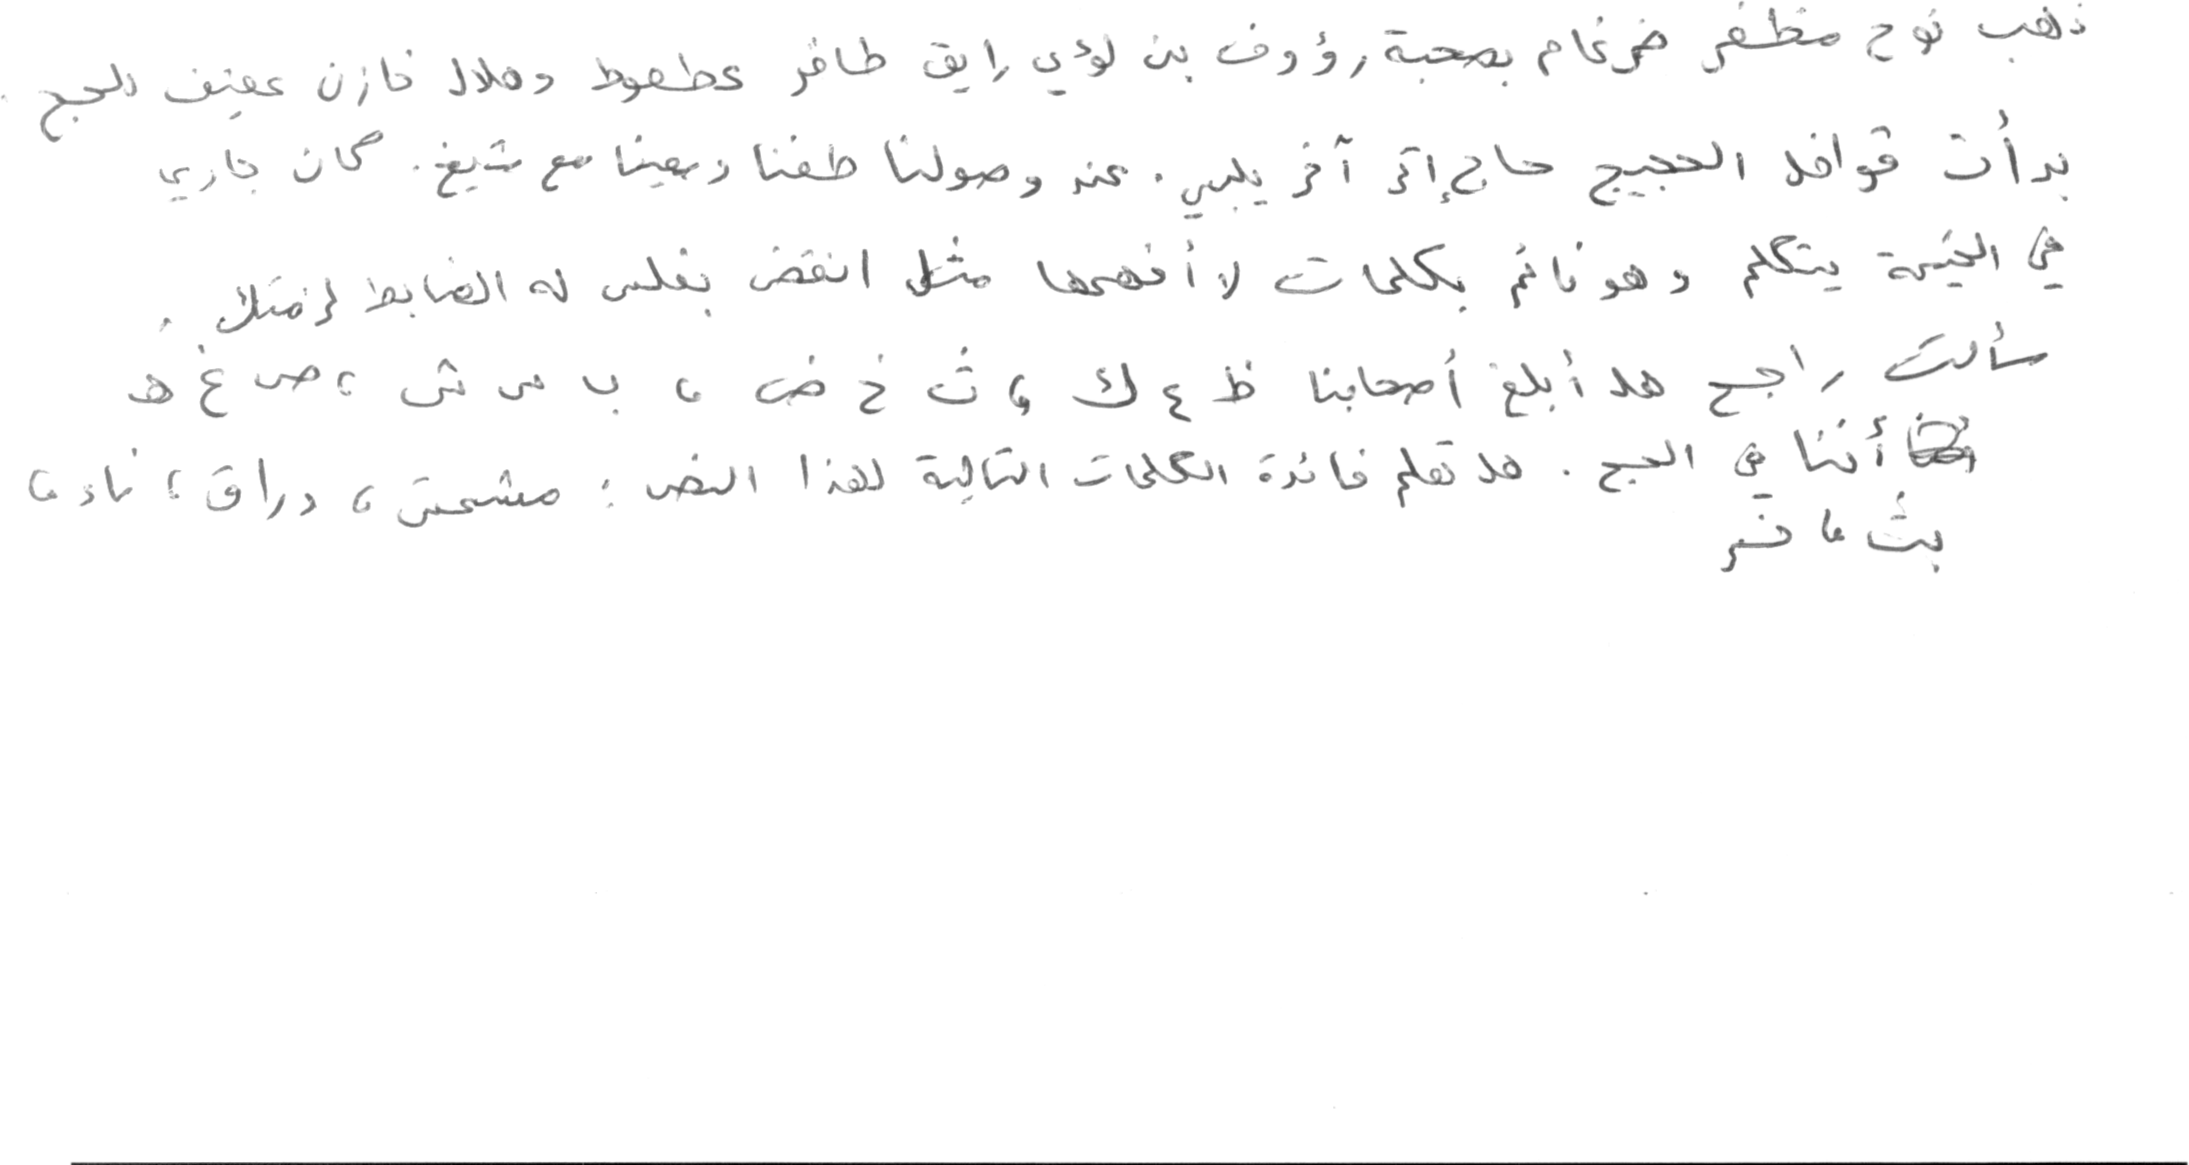 ذهب نوح مظفر ضرغام بصحبة رؤوف بن لؤي رايق ظافر عطعوط وهلال خازن عفيف للحج .
بدأت قوافل الحجيج حاج إثر آخر يلبي . عند وصولنا طفنا وسعينا مع شيخ . كان جاري
في الخيمة يتكلم وهو نائم بكلمات لا أفهمها مثل انقض بغلس له الضابط لزمتك .
سألت راجح هل أبلغ أصحابنا ظ ع ك ، ث خ ض ، ب س ش ، ص غ هـ
أننا في الحج . هل تعلم فائدة الكلمات التالية لهذا النص : مشمش ، دراق ، ناد ،
بث ،